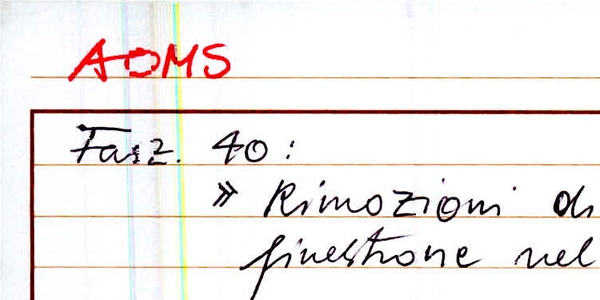 AOMS
Fasz. 40:
» Rimozioni di
finestrone nel